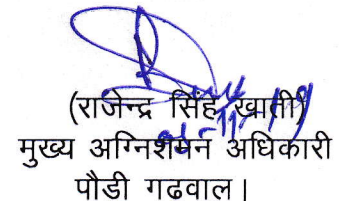 (राजेन्द्र सिंह खाती)
मुख्य अग्निशमन अधिकारी
पौडी गढवाल।